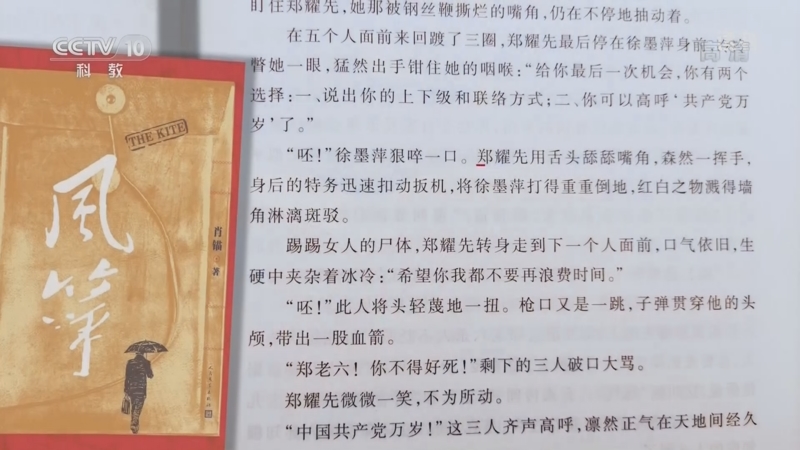 CCTV 10
科教
高清
THE KITE
风筝
肖锚
著
人民文学出版社
盯住郑耀先，她那被钢丝鞭撕烂的嘴角，仍在不停地抽动着。
在五个人面前来回踱了三圈，郑耀先最后停在徐墨萍身前
瞥她一眼，猛然出手钳住她的咽喉：“给你最后一次机会，你有两个
选择：一、说出你的上下级和联络方式；二、你可以高呼‘共产党万
岁’了。”
“呸！”徐墨萍狠啐一口。郑耀先用舌头舔舔嘴角，森然一挥手，
身后的特务迅速扣动扳机，将徐墨萍打得重重倒地，红白之物溅得墙
角淋漓斑驳。
踢踢女人的尸体，郑耀先转身走到下一个人面前，口气依旧，生
硬中夹杂着冰冷：“希望你我都不要再浪费时间。”
“呸！”此人将头轻蔑地一扭。枪口又是一跳，子弹贯穿他的头
颅，带出一股血箭。
“郑老六！你不得好死！”剩下的三人破口大骂。
郑耀先微微一笑，不为所动。
“中国共产党万岁！”这三人齐声高呼，凛然正气在天地间经久